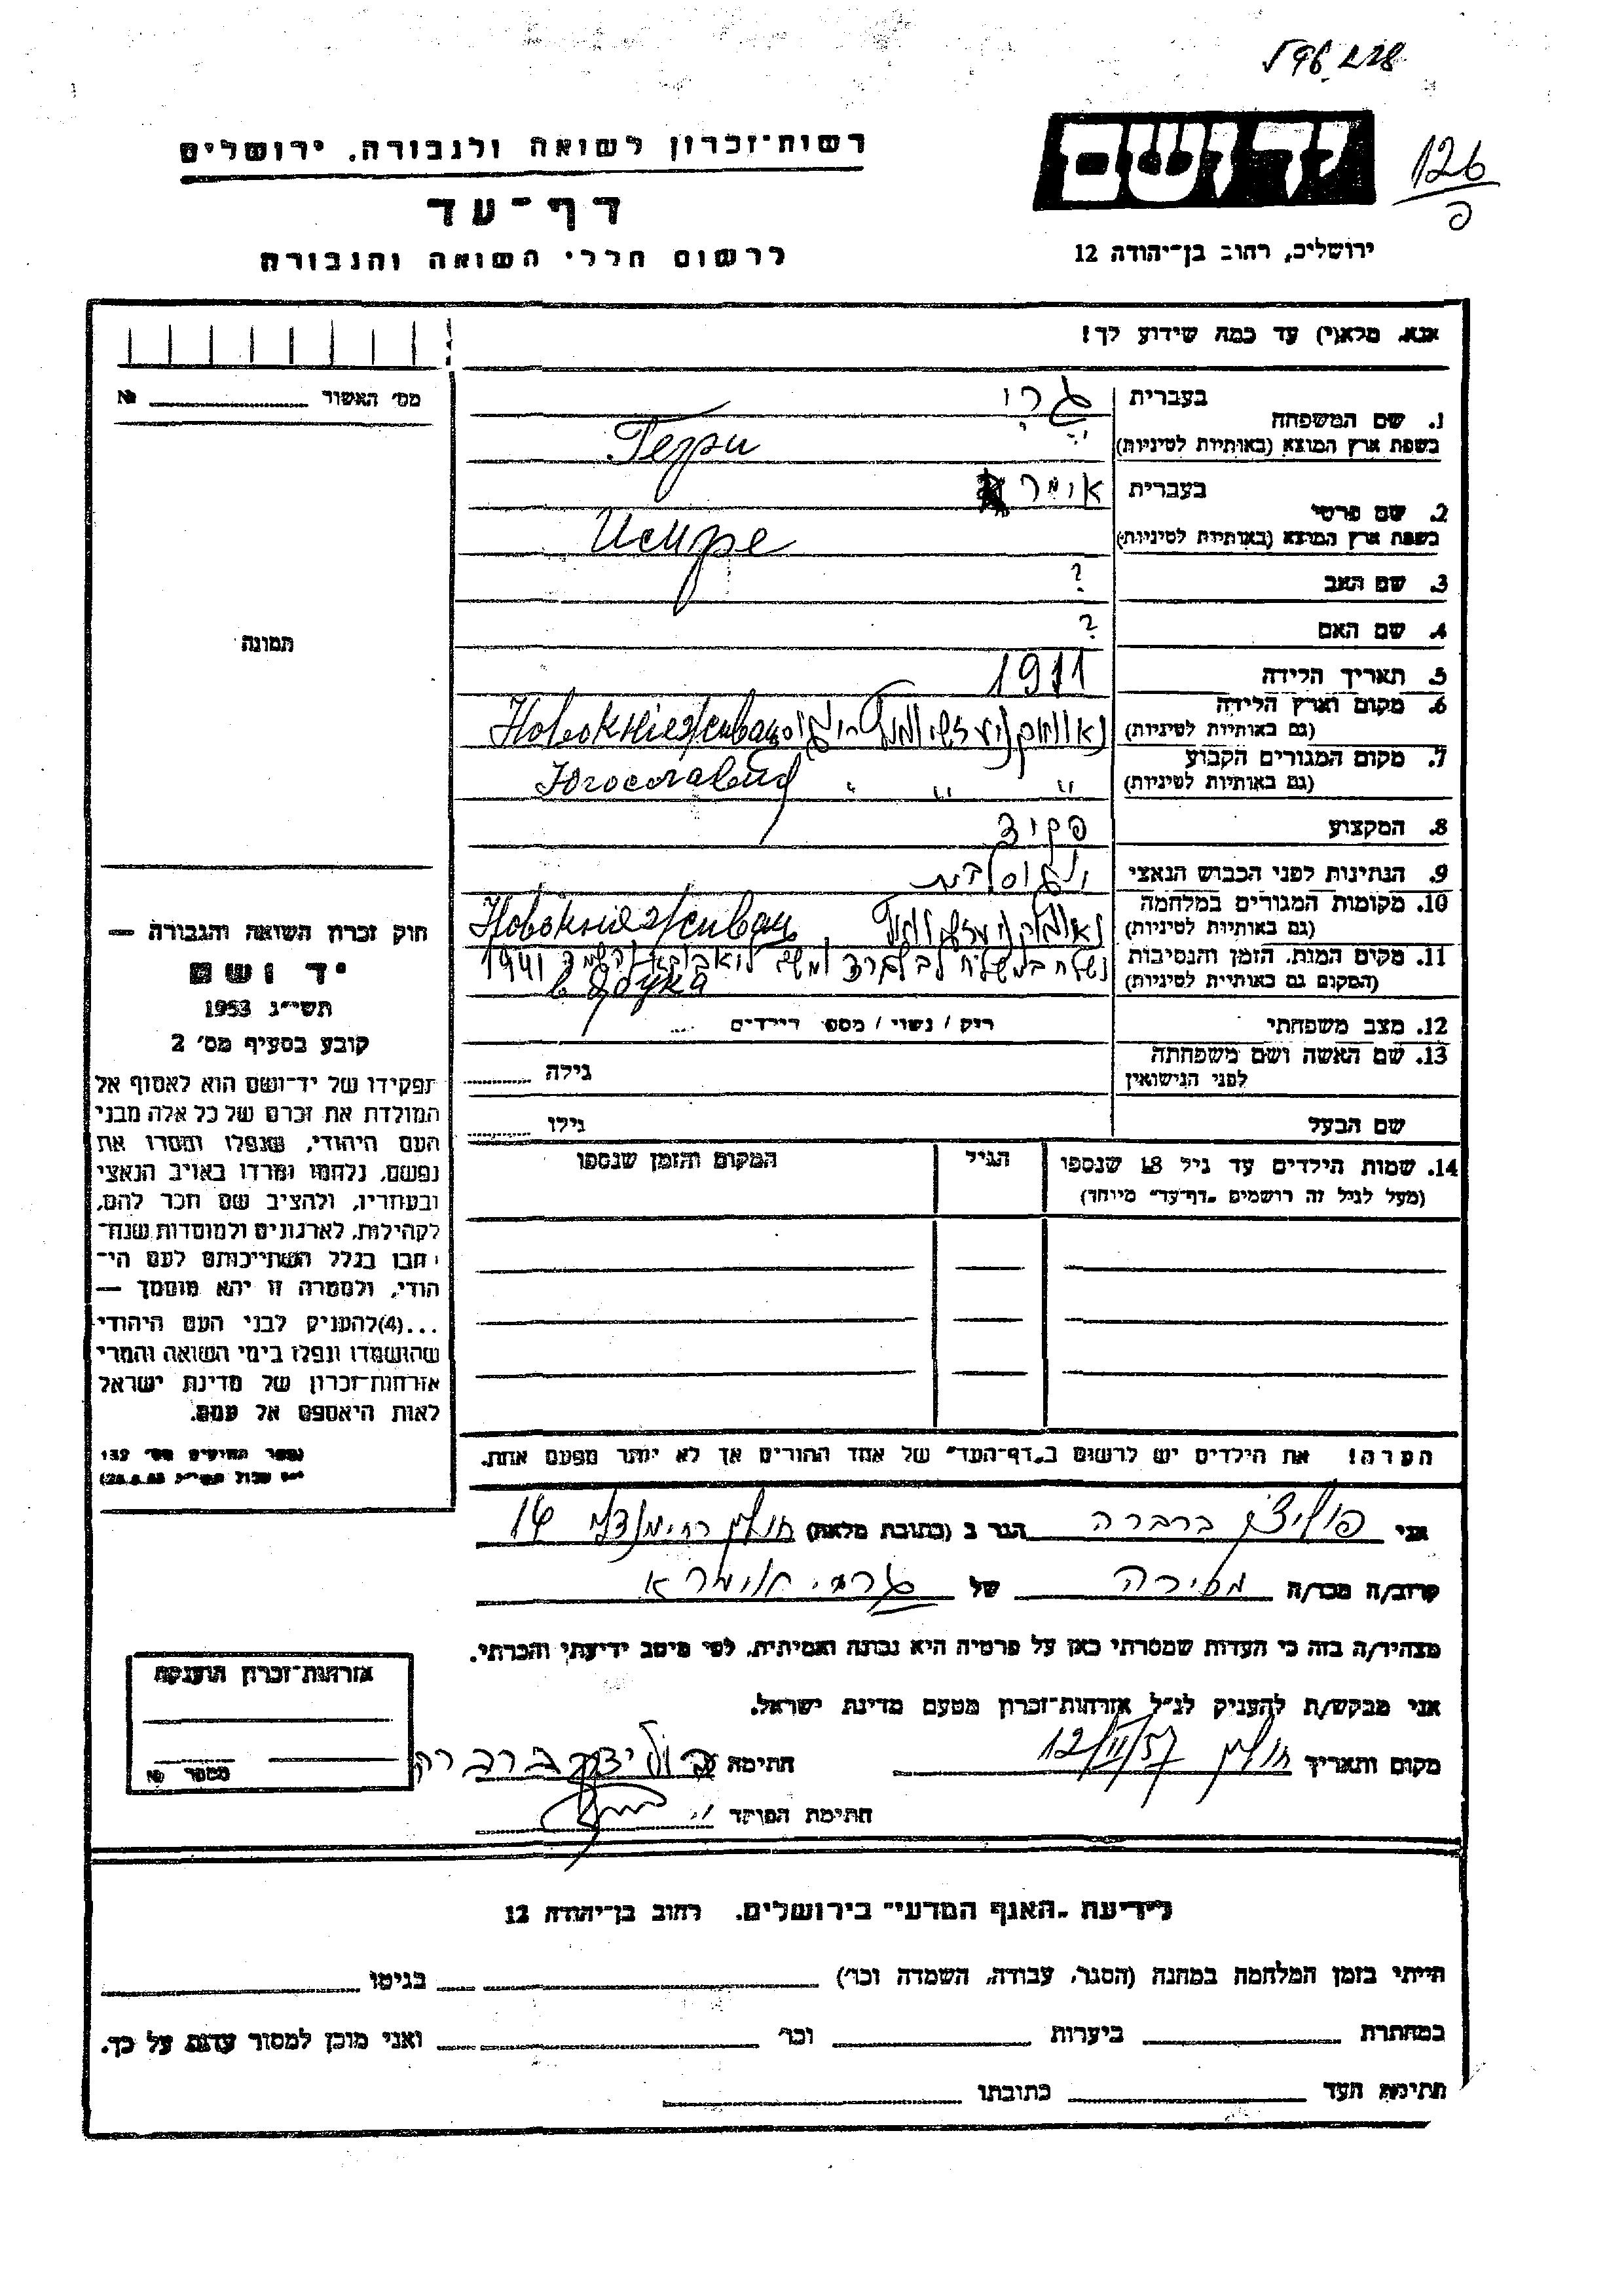 רשות־זכרון לשואה ולגבורה, ירושלים
דף־עד
לרשום חללי השואה והגבורה
יד ושם
126
ירושלים, רחוב בן־יהודה 12
אנא, מלא(י) עד כמה שידוע לך!
מס׳ האשור № 
תמונה
1. שם המשפחה
בעברית גרי
בשפת ארץ המוצא (באותיות לטיניות) Гери
2. שם פרטי
בעברית אימר
בשפת ארץ המוצא (באותיות לטיניות) Имре
3. שם האב ?
4. שם האם ?
5. תאריך הלידה 1911
6. מקום וארץ הלידה
(גם באותיות לטיניות)
7. מקום המגורים הקבוע
(גם באותיות לטיניות) " " " Югославия
8. המקצוע פקיד
9. הנתינות לפני הכבוש הנאצי
10. מקומות המגורים במלחמה
(גם באותיות לטיניות)
11. מקום המות, הזמן והנסיבות 1941
(המקום גם באותיות לטיניות)
12. מצב משפחתי רווק / נשוי / מספר הילדים ...
13. שם האשה ושם משפחתה גילה
לפני הנישואין
שם הבעל גילו
14. שמות הילדים עד גיל 18 שנספו הגיל המקום והזמן שנספו
(מעל לגיל זה רושמים "דף־עד" מיוחד)
הערה! את הילדים יש לרשום ב"דף־העד" של אחד ההורים אך לא יותר מפעם אחת.
חוק זכרון השואה והגבורה —
יד ושם
תשי״ג 1953
קובע בסעיף מס׳ 2
תפקידו של יד־ושם הוא לאסוף אל
המולדת את זכרם של כל אלה מבני
העם היהודי, שנפלו ומסרו את
נפשם, נלחמו ומרדו באויב הנאצי
ובעוזריו, ולהציב שם וזכר להם,
לקהילות, לארגונים ולמוסדות שנח־
רבו בגלל השתייכותם לעם הי־
הודי, ולמטרה זו יהא מוסמך —
...(4)להעניק לבני העם היהודי
שהושמדו ונפלו בימי השואה והמרי
אזרחות־זכרון של מדינת ישראל
לאות היאספם אל עמם.
אני ברברה הגר ב (כתובת מלאה) חולון 14
קרוב/ה מכר/ה מכירה של גרי אימרא
מצהיר/ה בזה כי העדות שמסרתי כאן על פרטיה היא נכונה ואמיתית, לפי מיטב ידיעתי והכרתי.
אני מבקש/ת להעניק לנ״ל אזרחות־זכרון מטעם מדינת ישראל.
מקום ותאריך חולון 12/II/57 חתימה
חתימת הפוקד
אזרחות־זכרון הוענקה
מספר №
לידיעת "האגף המדעי" בירושלים, רחוב בן־יהודה 12
הייתי בזמן המלחמה במחנה (הסגר, עבודה, השמדה וכו׳) בגיטו
במחתרת ביערות וכו׳ ואני מוכן למסור עדות על כך.
חתימת העד כתובתו